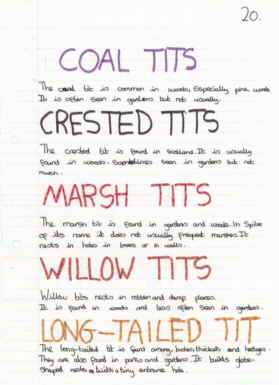 20.
COAL TITS
The coal tit is common in woods, Especially pine woods
It is often seen in gardens but not usually.
CRESTED TITS
The crested tit is found in Scotland. It is usually
found in woods. Sometimes seen in gardens but not
much.
MARSH TITS
The marsh tit is found in gardens and woods. In Spite
of its name it does not usually frequent marshes. It
nests in holes in trees or in walls.
WILLOW TITS
Willow tits nests in rotten and damp places.
It is found in woods and less often seen in gardens.
LONG-TAILED TIT
The long-tailed tit is found among bushes, thickets and hedges.
They are also found in parks and gardens. It builds globe-
shaped nests with a tiny entrance hole.